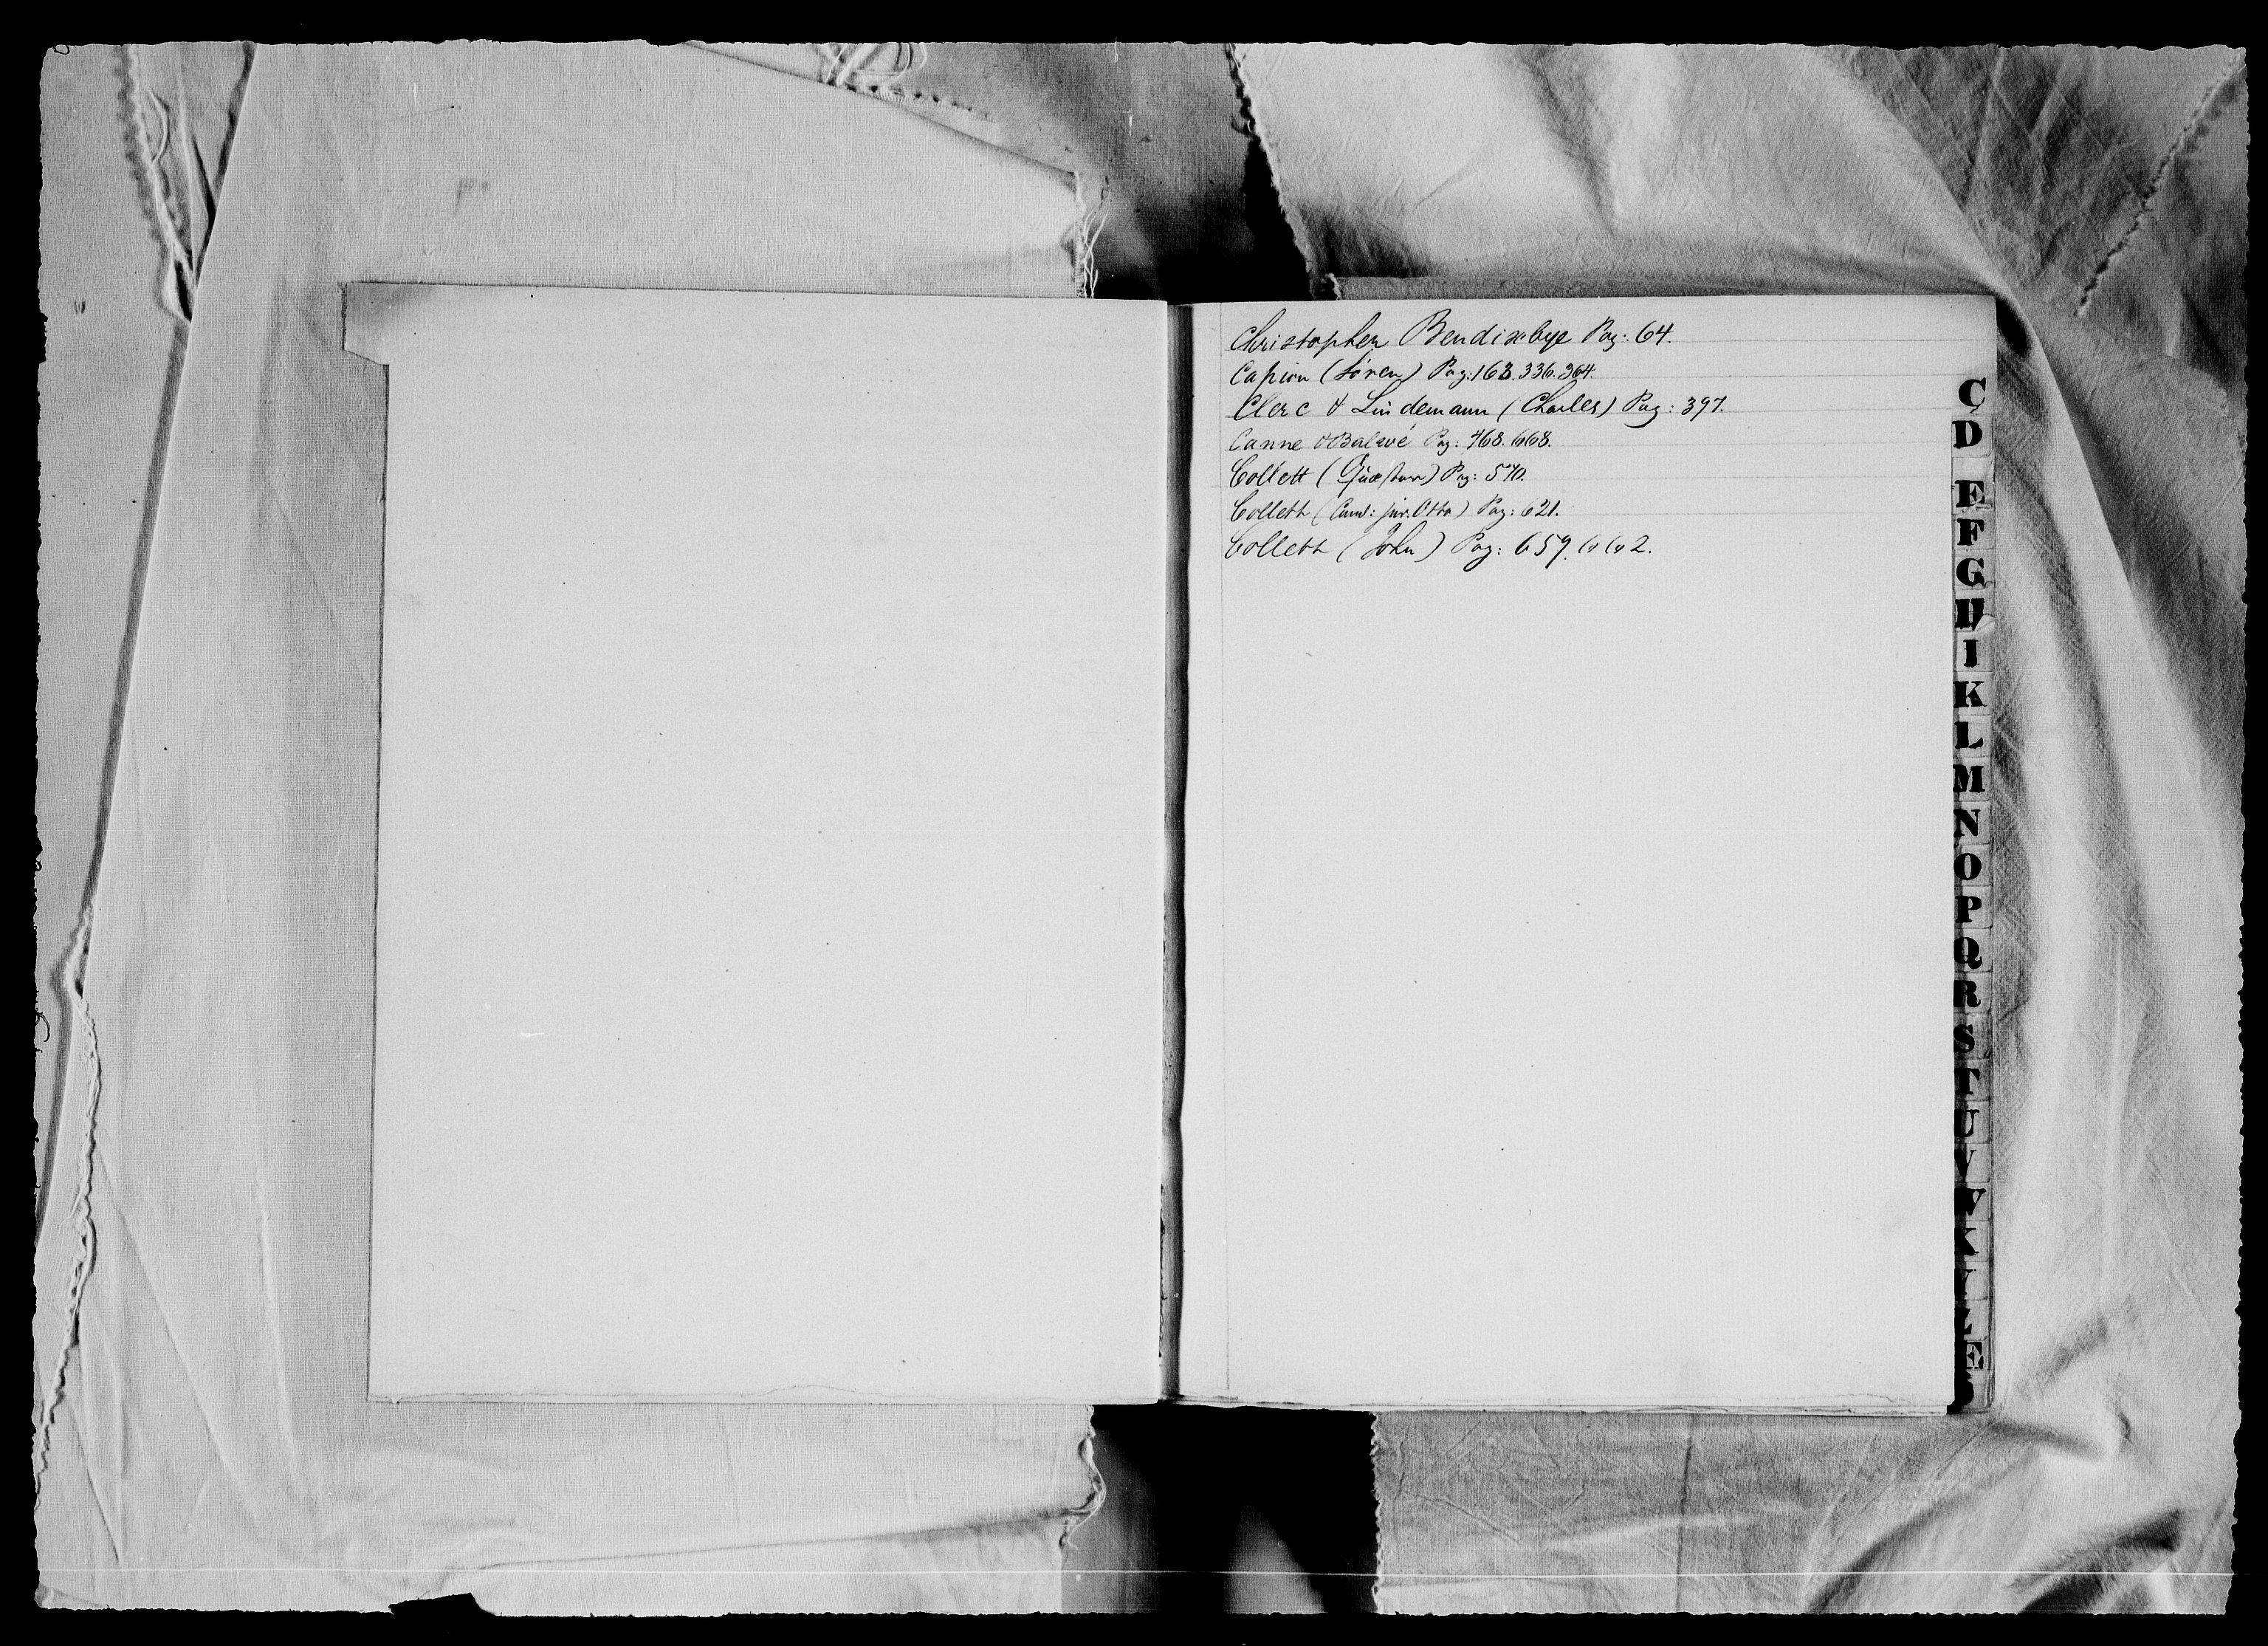 Christopher Bendixbye Pag: 64.
Capion (Sören) Pag: 163. 336. 364.
Clerc & Lindemann (Charles) Pag: 397.
Canne & Balavé Pag: 468. 668.
Collett (Quæstor) Pag: 570.
Colleth (Cand: jur. Otto) Pag: 621.
Colleth (John) Pag: 659. 662.
C
D
E
F
G
H
I
K
L
M
N
O
P
Q
R
S
T
U
V